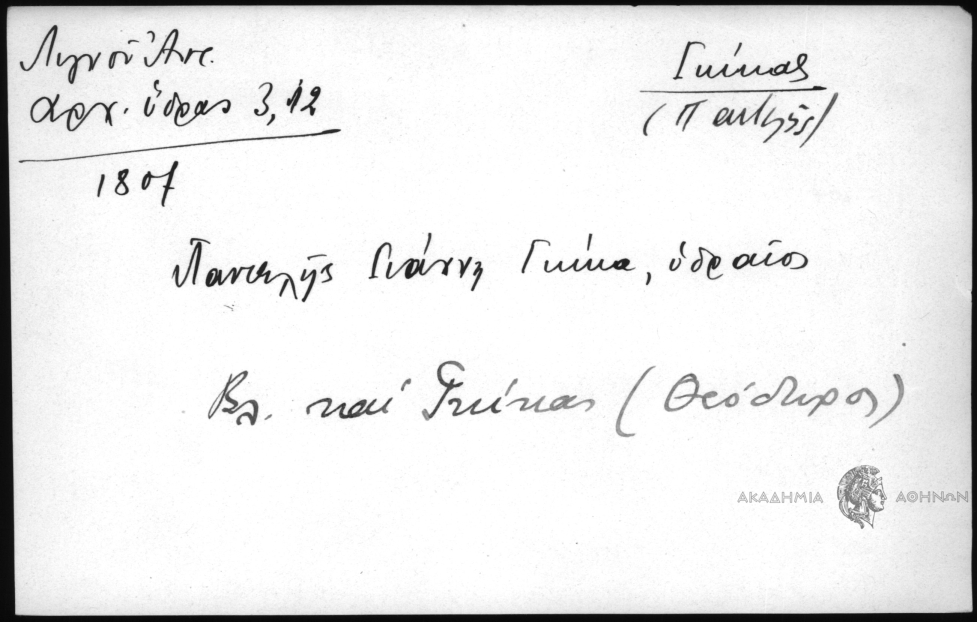 Λιγνοῦ Ἀντ.
ἀρχ. ὕδρας 3, 12
1807
Γκίκας
(Παντελῆς)
Παντελῆς Γιάννη Γκίκα, ὑδραῖος
Βλ. καί Γκίκας (Θεόδωρος)
ΑΚΑΔΗΜΙΑ ΑΘΗΝΩΝ